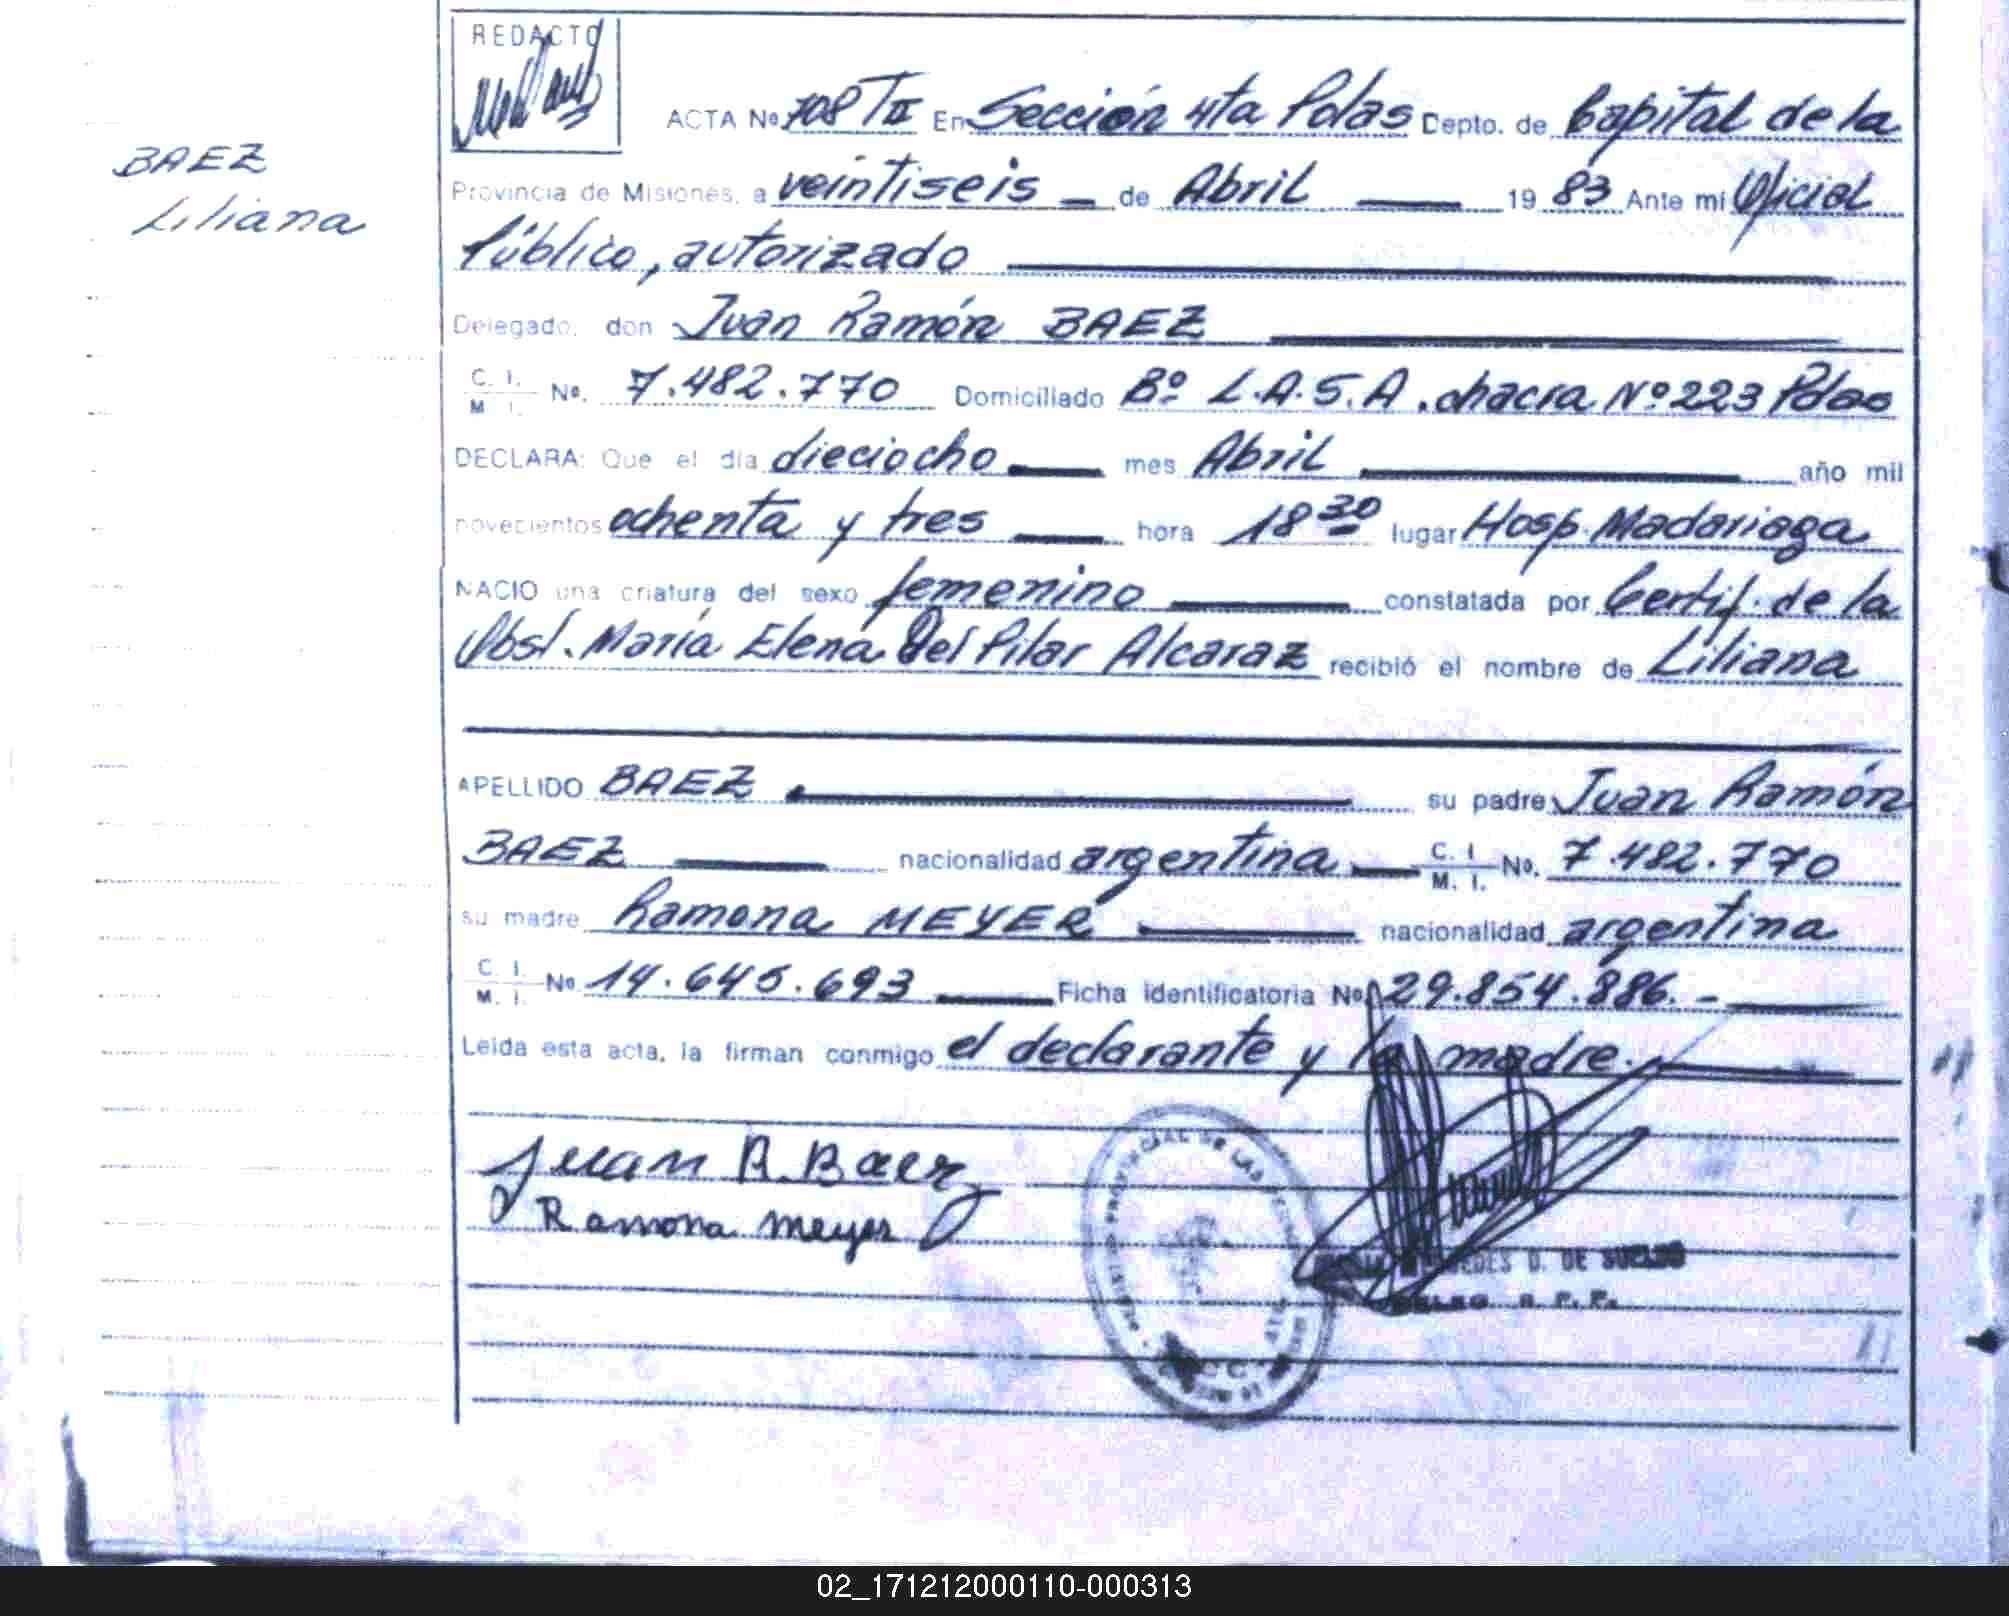 REDACTO
ACTA No. 708 TII En Sección 4ta Pdas Depto. de Capital de la
BAEZ
Liliana
Provincia de Misiones, a veintiseis de Abril 19 83 Ante mi Oficial
Público, autorizado
Delegado, don Juan Ramón BAEZ
C. I. M. I. No. 7.482.770 Domiciliado Bº L.A.S.A. chacra Nº 223 Pdas
DECLARA: Que el día dieciocho mes Abril año mil
novecientos ochenta y tres hora 18 30 lugar Hosp. Madariaga
NACIO una criatura del sexo femenino constatada por Certif. de la
Obst. María Elena Del Pilar Alcaraz recibió el nombre de Liliana
APELLIDO BAEZ su padre Juan Ramón
BAEZ nacionalidad argentina C. I. M. I. No. 7.482.770
su madre Ramona MEYER nacionalidad argentina
C. I. M. I. No 14.645.693 Ficha identificatoria No 29.854.886. -
Leida esta acta, la firman conmigo el declarante y la madre.
Juan R. Baez
Ramona Meyer
D. DE SUELDO
R. P. P.
02_171212000110-000313